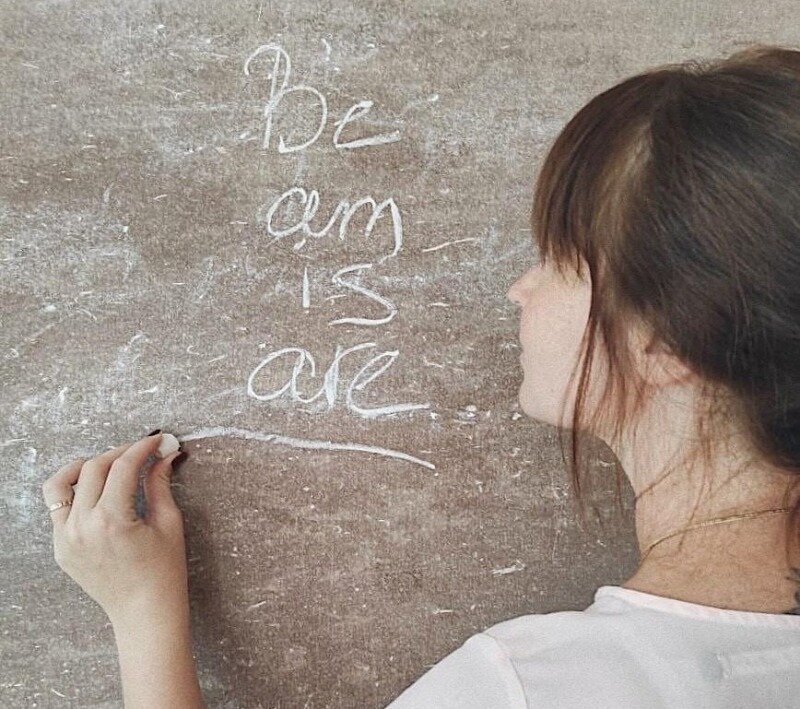 Be
am
is
are